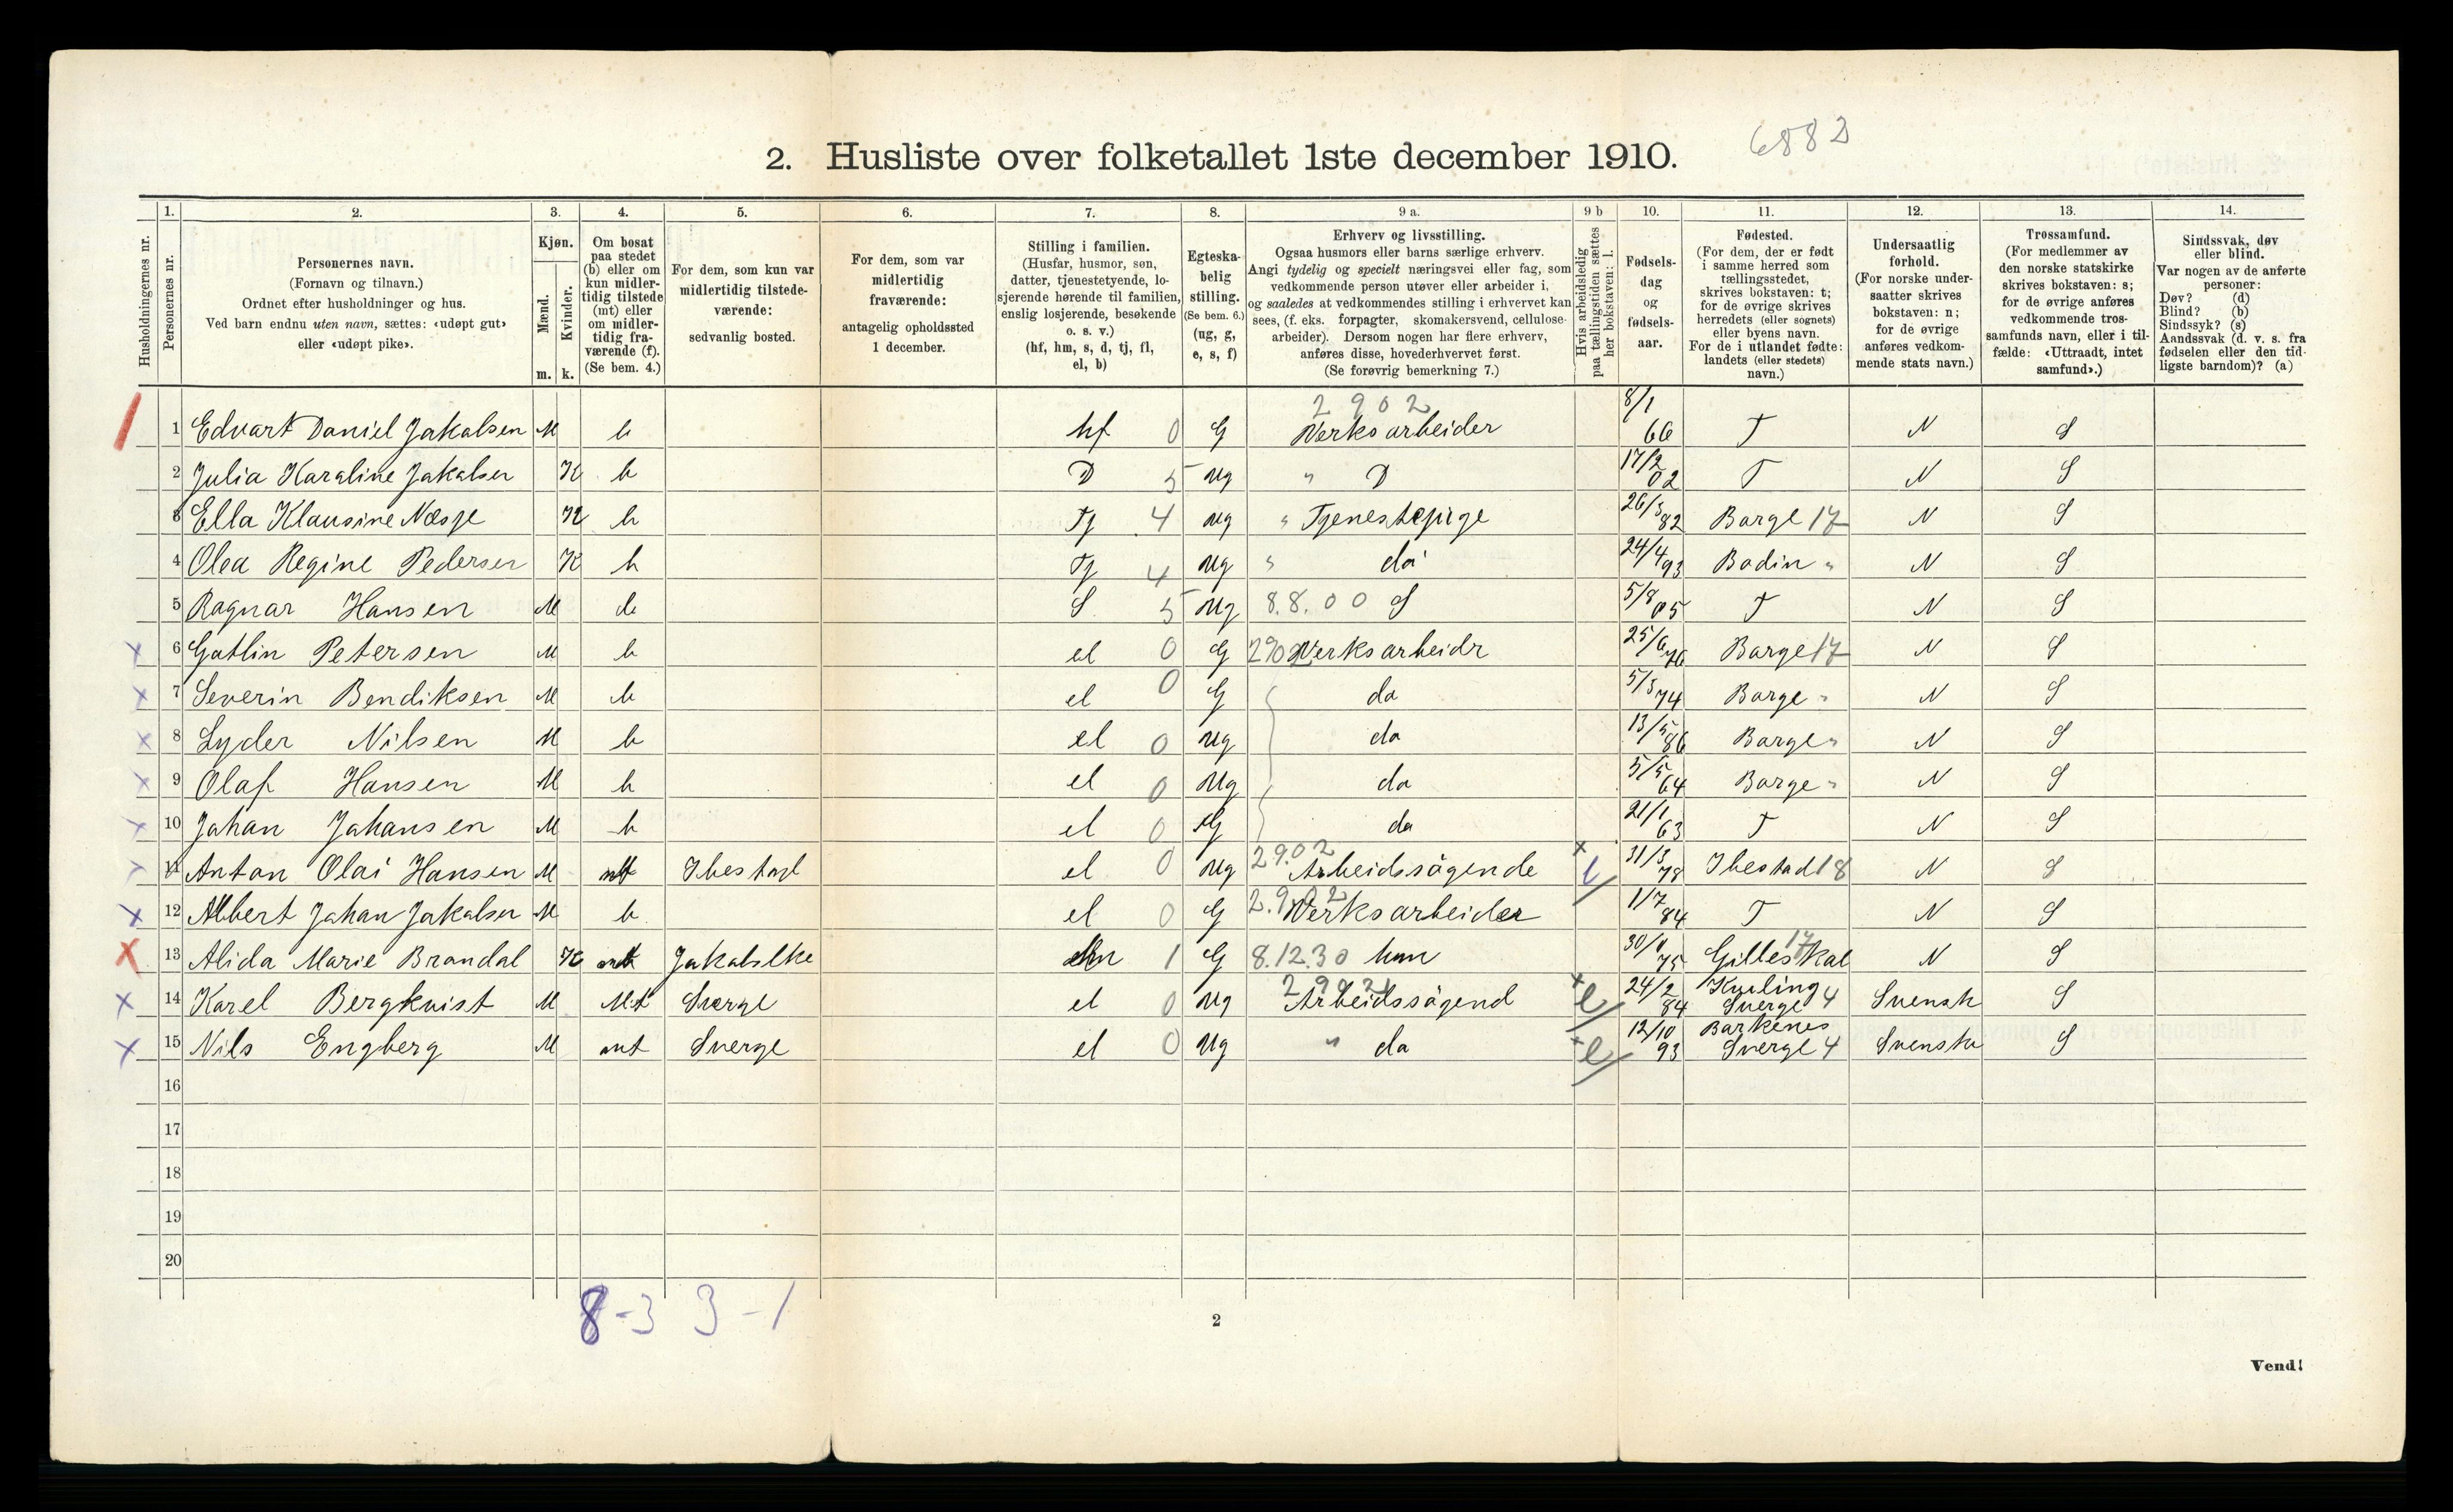 6882
2. Husliste over folketallet 1ste december 1910.
1. 2. 3. 4. 5. 6. 7. 8. 9 a. 9 b 10. 11. 12. 13. 14.
Husholdningernes nr.
Personernes nr.
Personernes navn.
(Fornavn og tilnavn.)
Ordnet efter husholdninger og hus.
Ved barn endnu uten navn, sættes: «udøpt gut»
eller «udøpt pike».
Kjøn.
Mænd.
Kvinder.
m. k.
Om bosat
paa stedet
(b) eller om
kun midler-
tidig tilstede
(mt) eller
om midler-
tidig fra-
værende (f).
(Se bem. 4.)
For dem, som kun var
midlertidig tilstede-
værende:
sedvanlig bosted.
For dem, som var
midlertidig
fraværende:
antagelig opholdssted
1 december.
Stilling i familien.
(Husfar, husmor, søn,
datter, tjenestetyende, lo-
sjerende hørende til familien,
enslig losjerende, besøkende
o. s. v.)
(hf, hm, s, d, tj, fl,
el, b)
Egteska-
belig
stilling.
(Se bem. 6.)
(ug, g,
e, s, f)
Erhverv og livsstilling.
Ogsaa husmors eller barns særlige erhverv.
Angi tydelig og specielt næringsvei eller fag, som
vedkommende person utøver eller arbeider i,
og saaledes at vedkommendes stilling i erhvervet kan
sees, (f. eks. forpagter, skomakersvend, cellulose-
arbeider). Dersom nogen har flere erhverv,
anføres disse, hovederhvervet først.
(Se forøvrig bemerkning 7.)
Hvis arbeidsledig
paa tællingstiden sættes
her bokstaven: l.
Fødsels-
dag
og
fødsels-
aar.
Fødested.
(For dem, der er født
i samme herred som
tællingsstedet,
skrives bokstaven: t;
for de øvrige skrives
herredets (eller sognets)
eller byens navn.
For de i utlandet fødte:
landets (eller stedets)
navn.)
Undersaatlig
forhold.
(For norske under-
saatter skrives
bokstaven: n;
for de øvrige
anføres vedkom-
mende stats navn.)
Trossamfund.
(For medlemmer av
den norske statskirke
skrives bokstaven: s;
for de øvrige anføres
vedkommende tros-
samfunds navn, eller i til-
fælde: «Uttraadt, intet
samfund».)
Sindssvak, døv
eller blind.
Var nogen av de anførte
personer:
Døv? (d)
Blind? (b)
Sindssyk? (s)
Aandssvak (d. v. s. fra
fødselen eller den tid-
ligste barndom)? (a)
1 Edvart Daniel Jakalsen M b hf 0 G 2902 Verksarbeider 8/1 66 T N S
2 Julia Karaline Jakalsen K b D 5 ug " D 17/2 02 T N S
3 Ella Klausine Næsje K b Tj 4 ug " Tjenestepige 26/3 82 Barge 17 N S
4 Olea Regine Pedersen K b Tj 4 ug " do 24/4 93 Badin " N S
5 Ragnar Hansen M b S 5 ug 8.8.00 S 5/8 05 T N S
6 Gatlin Petersen M b el 0 G 2902 Verksarbeidr 25/6 76 Barge 17 N S
7 Severin Bendiksen M b el 0 G do 5/3 74 Barge " N S
8 Lyder Nilsen M b el 0 ug do 13/5 86 Barge " N S
9 Olaf Hansen M b el 0 ug do 5/5 64 Barge " N S
10 Jahan Jahansen M b el 0 G do 21/1 63 T N S
11 Antan Olai Hansen M mt Ibestad el 0 ug 2902 Arbeidssøgende l 31/3 78 Ibestad 18 N S
12 Albert Jahan Jakalsen M b el 0 G 2.902 Verksarbeider 1/7 84 T N S
13 Alida Marie Brandal K mt Jakalslke hm 1 G 8.12.30 hm 30/9 75 Gilleskal 17 N S
14 Karel Bergkvist M Mt Sverge el 0 ug 2902 Arbeidssøgend l 24/2 84 Kuling Sverge 4 Svensk S
15 Nils Engberg M mt Sverge el 0 ug " do l 12/10 93 Barkenes Sverge 4 Svensk S
16
17
18
19
20
8-3 3-1
2
Vend!